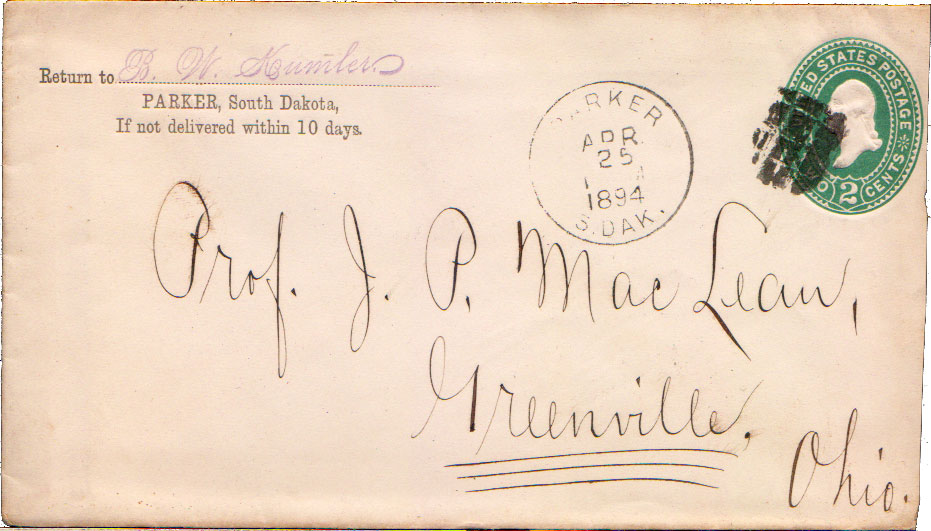 Return to B. W. Kumler
PARKER, South Dakota,
If not delivered within 10 days.
PARKER
APR
25
1894
S. DAK.
UNITED STATES POSTAGE
2 CENTS
Prof. J. P. MacLean,
Greenville,
Ohio.